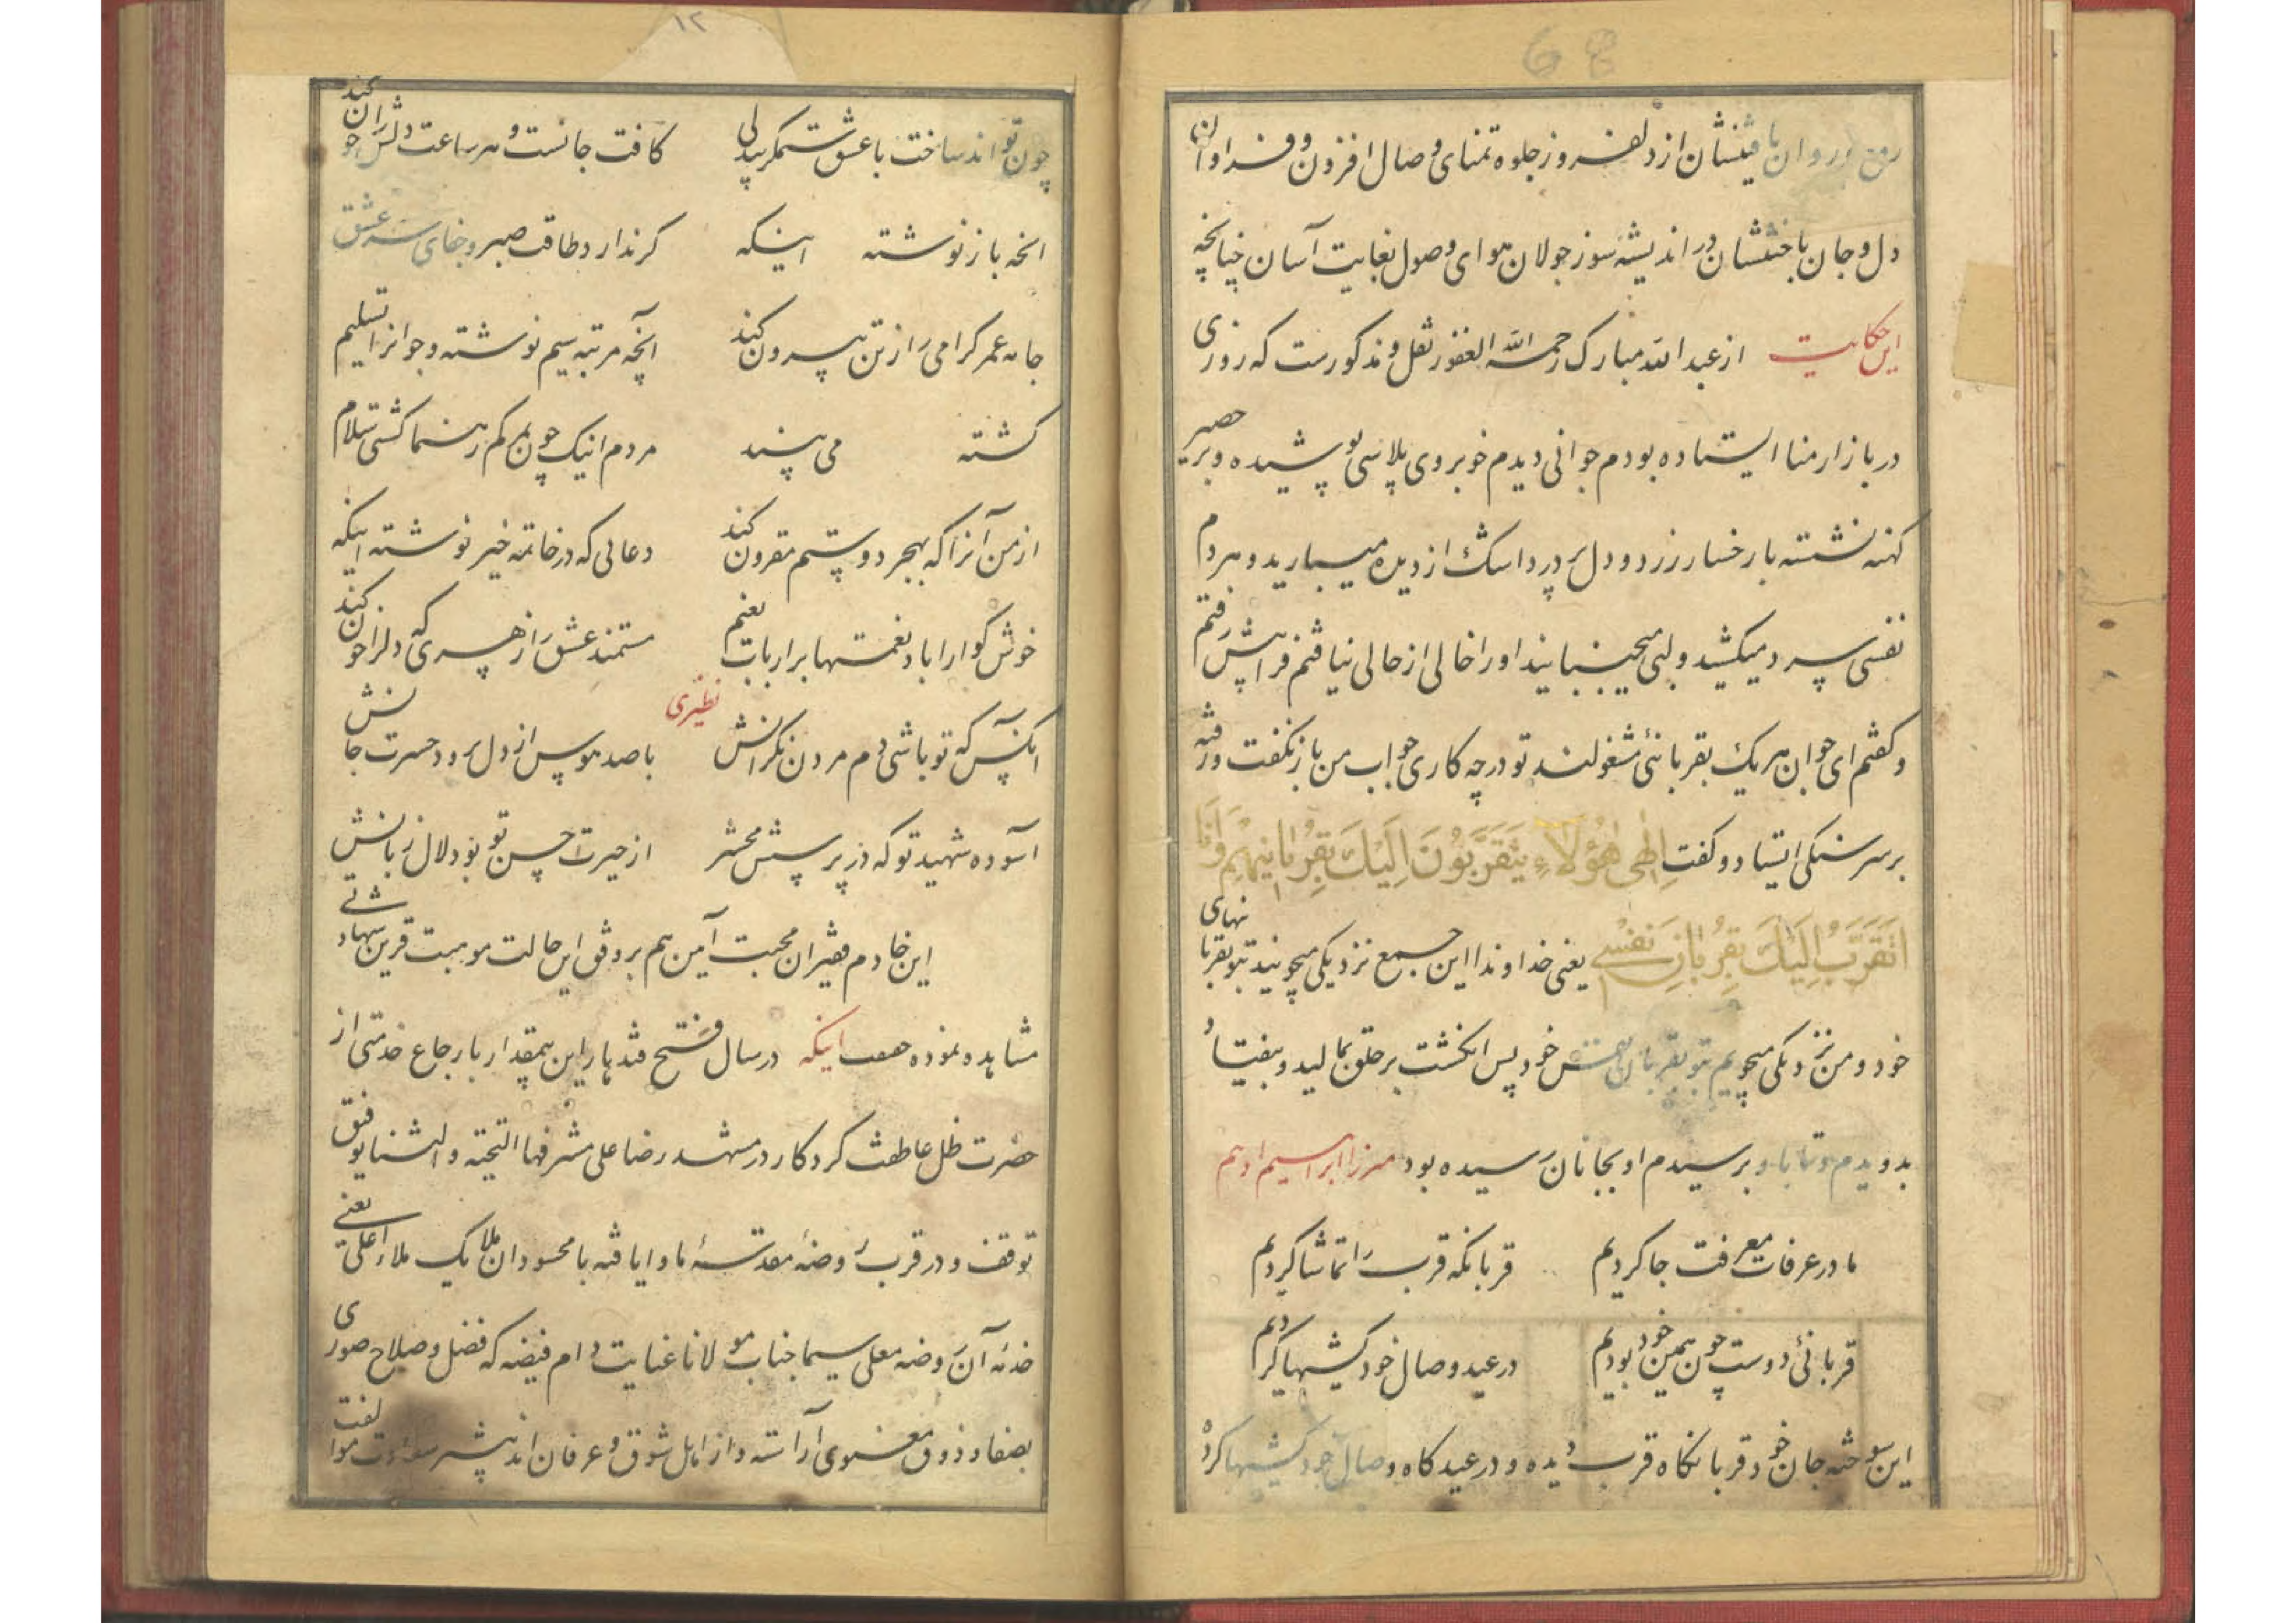 68
روان باقیشان از دلفروز جلوه تمنای وصال افزون و فراوان
دل و جان باختشان در اندیشه سوز جولان هوای وصول بغایت آسان چنانچه
این حکایت از عبد الله مبارک رحمه الله الغفور نقل و مذکورست که روزی
در بازار منا ایستاده بودم جوانی دیدم خوبروی پلاسی پوشیده و بر حصیر
کهنه نشسته با رخسار زرد و دل پر درد اشک از دیده میبارید و هر دم
نفسی سرد میکشید و لبی میجنبانید او را خالی از حالی نیافتم فرا پیش رفتم
و کفتم ای جوان هر یک بقربانئ مشغولند تو در چه کاری جواب من باز نکفت و رفته
بر سر سنکی ایستاد و کفت اِلٰهی هٰؤُلَاءِ یَتَقَرَّبُونَ اِلَیْكَ بِقُرْبَانِهِمْ وَاَنَا
اَتَقَرَّبُ اِلَیْكَ بِقُرْبَانِ نَفْسِی یعنی خداوندا این جمع نزدیکی میجویند بتو بقربانیهای
خود و من نزدیکی میجویم بتو بقربان نفس خود پس انکشت بر حلق بمالید و بیفتاد
بدویدم و تا باو برسیدم او بجانان رسیده بود میرزا ابراهیم ادهم
ما در عرفات معرفت جا کردیم قربانکه قرب را تماشا کردیم
قربانئ دوست چون همین خود بودیم در عید وصال خود کشیها کردیم
این سوخته جان خود قربانکاه قرب دیده و در عیدکاه وصال خود کشیها کرده
۱۲
چون تواند ساخت با عشق ستمکر بیدلی کافت جانست و هر ساعت دلش را خون کند
انچه باز نوشته اینکه کر ندارد طاقت صبر و جفای عشق
جامه عمر کرامی را ز تن بیرون کند آنچه مرتبه سیم نوشته و جوانرا تسلیم
کشته می بیند مردم اینک چون بمرکم رهنما کشتی سلام
از من آنرا که بهجر دوستم مقرون کند دعائی که در خاتمه خیر نوشته اینکه
خوش کوارا باد نعمتها بر ارباب نعیم مستمند عشق را زهری که دلرا خون کند
نظیری
آنکس که تو باشی دم مردن نکرانش با صد هوس از دل برود حسرت جانش
آسوده شهید تو که در پرسش محشر از حیرت حسن تو بود لال زبانش
این خادم فقیران محبت آیین هم بر وفق این حالت موهبت قرین
مشاهده نموده اینکه در سال فتح قندهار این بیمقدار بارجاع خدمتی از
حضرت ظل عاطفت کردکار در مشهد رضا علی مشرفها التحیة و الثنا توفیق
توقف و در قرب روضهٔ مقدسهٔ ماوا یافته با محسودان ملایک ملاء اعلی یعنی
خدمهٔ آن روضه معلی سیما جناب مولانا عنایت دام فیضه که فضل و صلاح صوری
بصفا و ذوق معنوی آراسته و از اهل شوق و عرفان